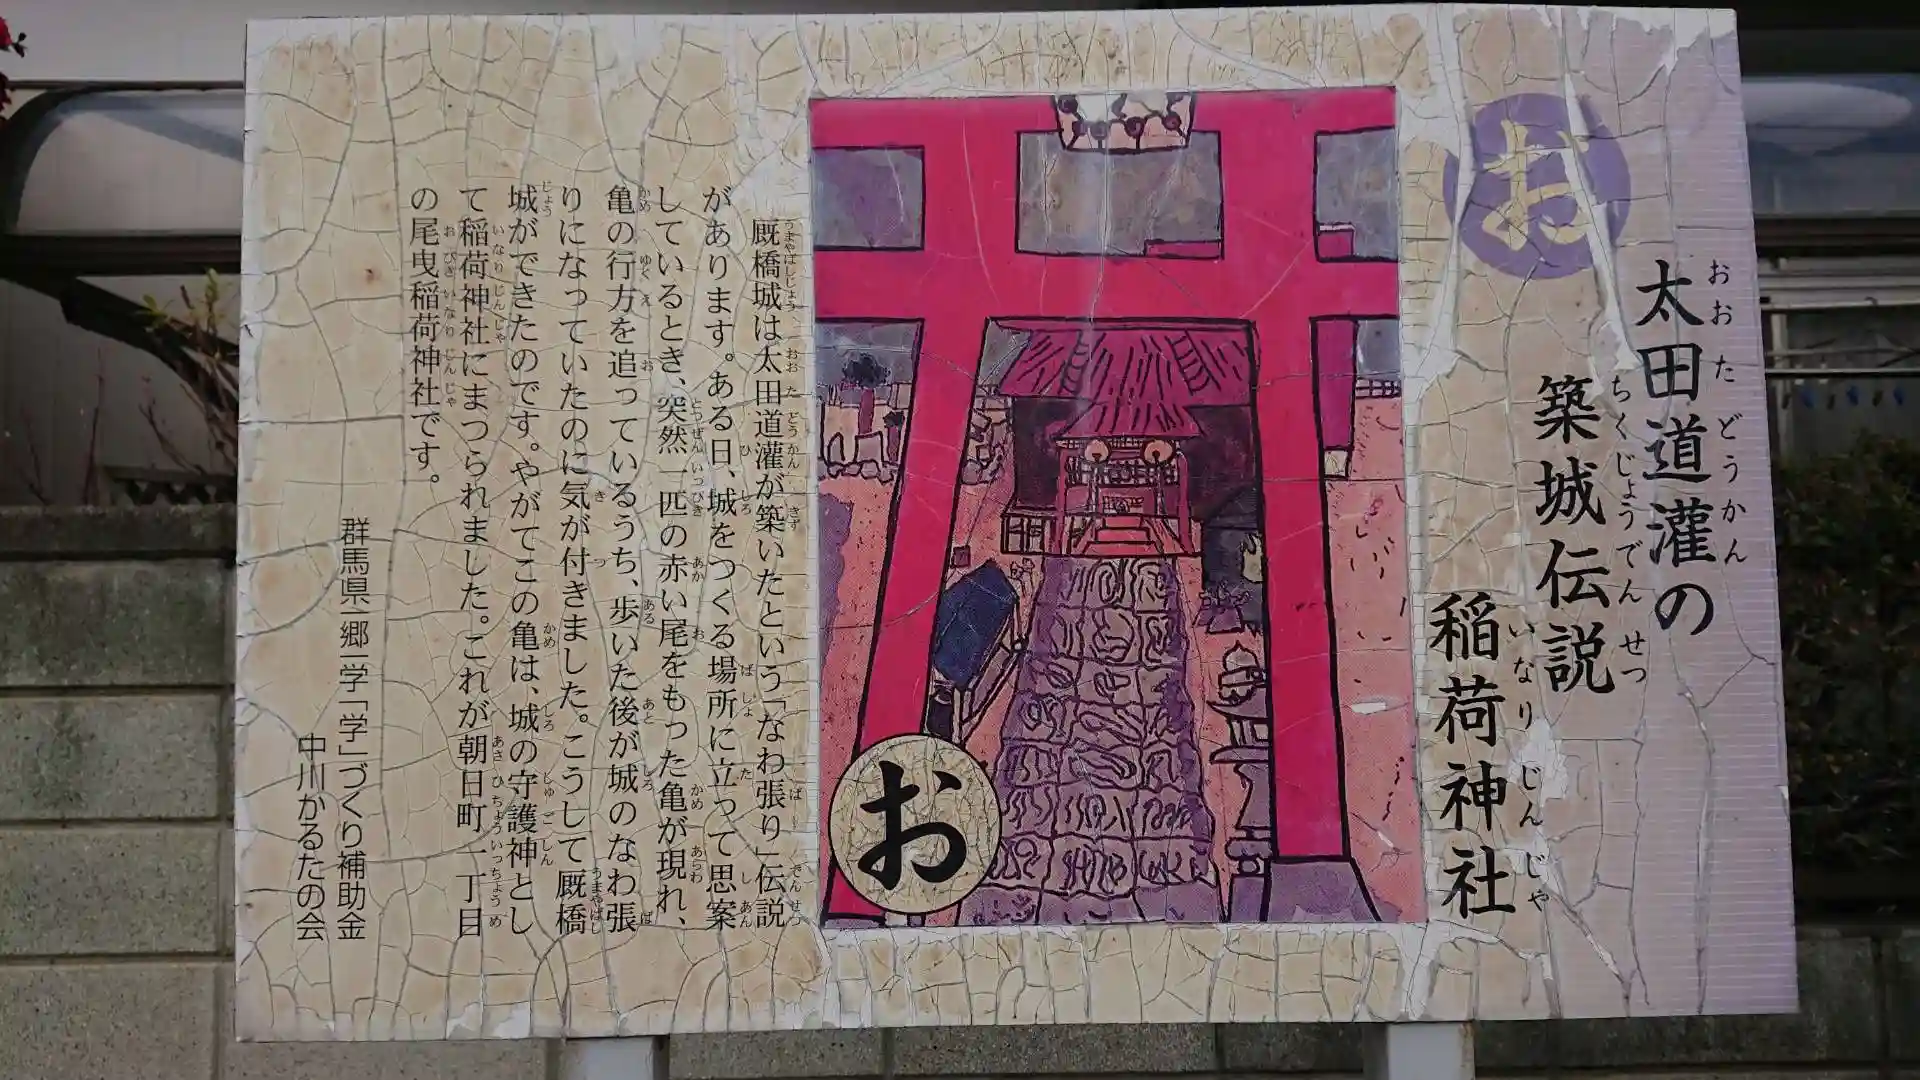 お
太田道灌の
築城伝説
稲荷神社
お
厩橋城は太田道灌が築いたという「なわ張り」伝説
があります。ある日、城をつくる場所に立って思案
しているとき、突然一匹の赤い尾をもった亀が現れ、
亀の行方を追っているうち、歩いた後が城のなわ張
りになっていたのに気が付きました。こうして厩橋
城ができたのです。やがてこの亀は、城の守護神とし
て稲荷神社にまつられました。これが朝日町一丁目
の尾曳稲荷神社です。
群馬県 郷一学「学」づくり補助金
中川かるたの会